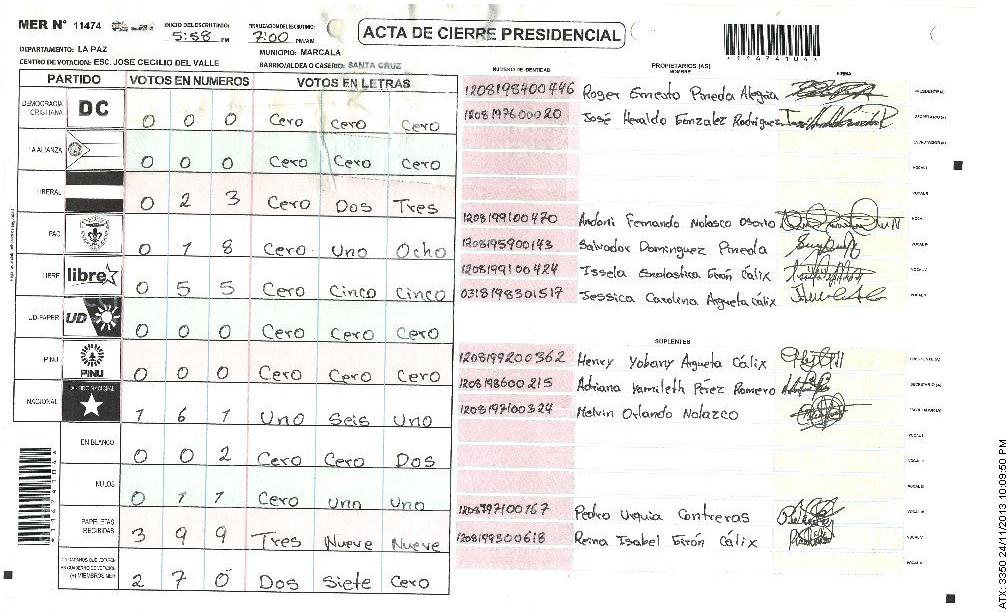 MER N° 11474
INICIO DEL ESCRUTINIO: 5:58 PM
FINALIZACION DEL ESCRUTINIO: 7:00 PM/AM
ACTA DE CIERRE PRESIDENCIAL
DEPARTAMENTO: LA PAZ
MUNICIPIO: MARCALA
CENTRO DE VOTACION: ESC. JOSE CECILIO DEL VALLE
BARRIO/ALDEA O CASERIO: SANTA CRUZ
*11474104*
PARTIDO VOTOS EN NUMEROS VOTOS EN LETRAS
DEMOCRACIA CRISTIANA DC 0 0 0 Cero Cero Cero
LA ALIANZA 0 0 0 Cero Cero Cero
LIBERAL 0 2 3 Cero Dos Tres
PAC 0 1 8 Cero Uno Ocho
LIBRE libre 0 5 5 Cero Cinco Cinco
UD-FAPER UD 0 0 0 Cero Cero Cero
PINU PINU 0 0 0 Cero Cero Cero
NACIONAL PARTIDO NACIONAL 1 6 1 Uno Seis Uno
EN BLANCO 0 0 2 Cero Cero Dos
NULOS 0 1 1 Cero Uno Uno
PAPELETAS RECIBIDAS 3 9 9 Tres Nueve Nueve
2 7 0 Dos Siete Cero
*11474104*
NUMERO DE IDENTIDAD PROPIETARIOS (AS) NOMBRE FIRMA
1208198400446 Roger Ernesto Pineda Alegria PRESIDENTE (A)
1208197600020 José Heraldo Gonzalez Rodriguez SECRETARIO (A)
ESCRUTADOR (A)
VOCAL I
VOCAL II
1208199100470 Andoni Fernando Nolasco Osorto
1208195900143 Salvador Dominguez Pineda
1208199100424 Issela Escolastica Girón Cálix
0318198301517 Jessica Carolina Argueta Cálix
SUPLENTES
1208199200362 Henry Yobany Argueta Cálix PRESIDENTE (A)
1208198600215 Adriana Yamileth Pérez Romero SECRETARIO (A)
1208197100324 Melvin Orlando Nolazco ESCRUTADOR (A)
VOCAL I
1208197100167 Pedro Urquia Contreras
1208199300618 Reina Isabel Girón Cálix
ATX: 3350 24/11/2013 10:09:50 PM